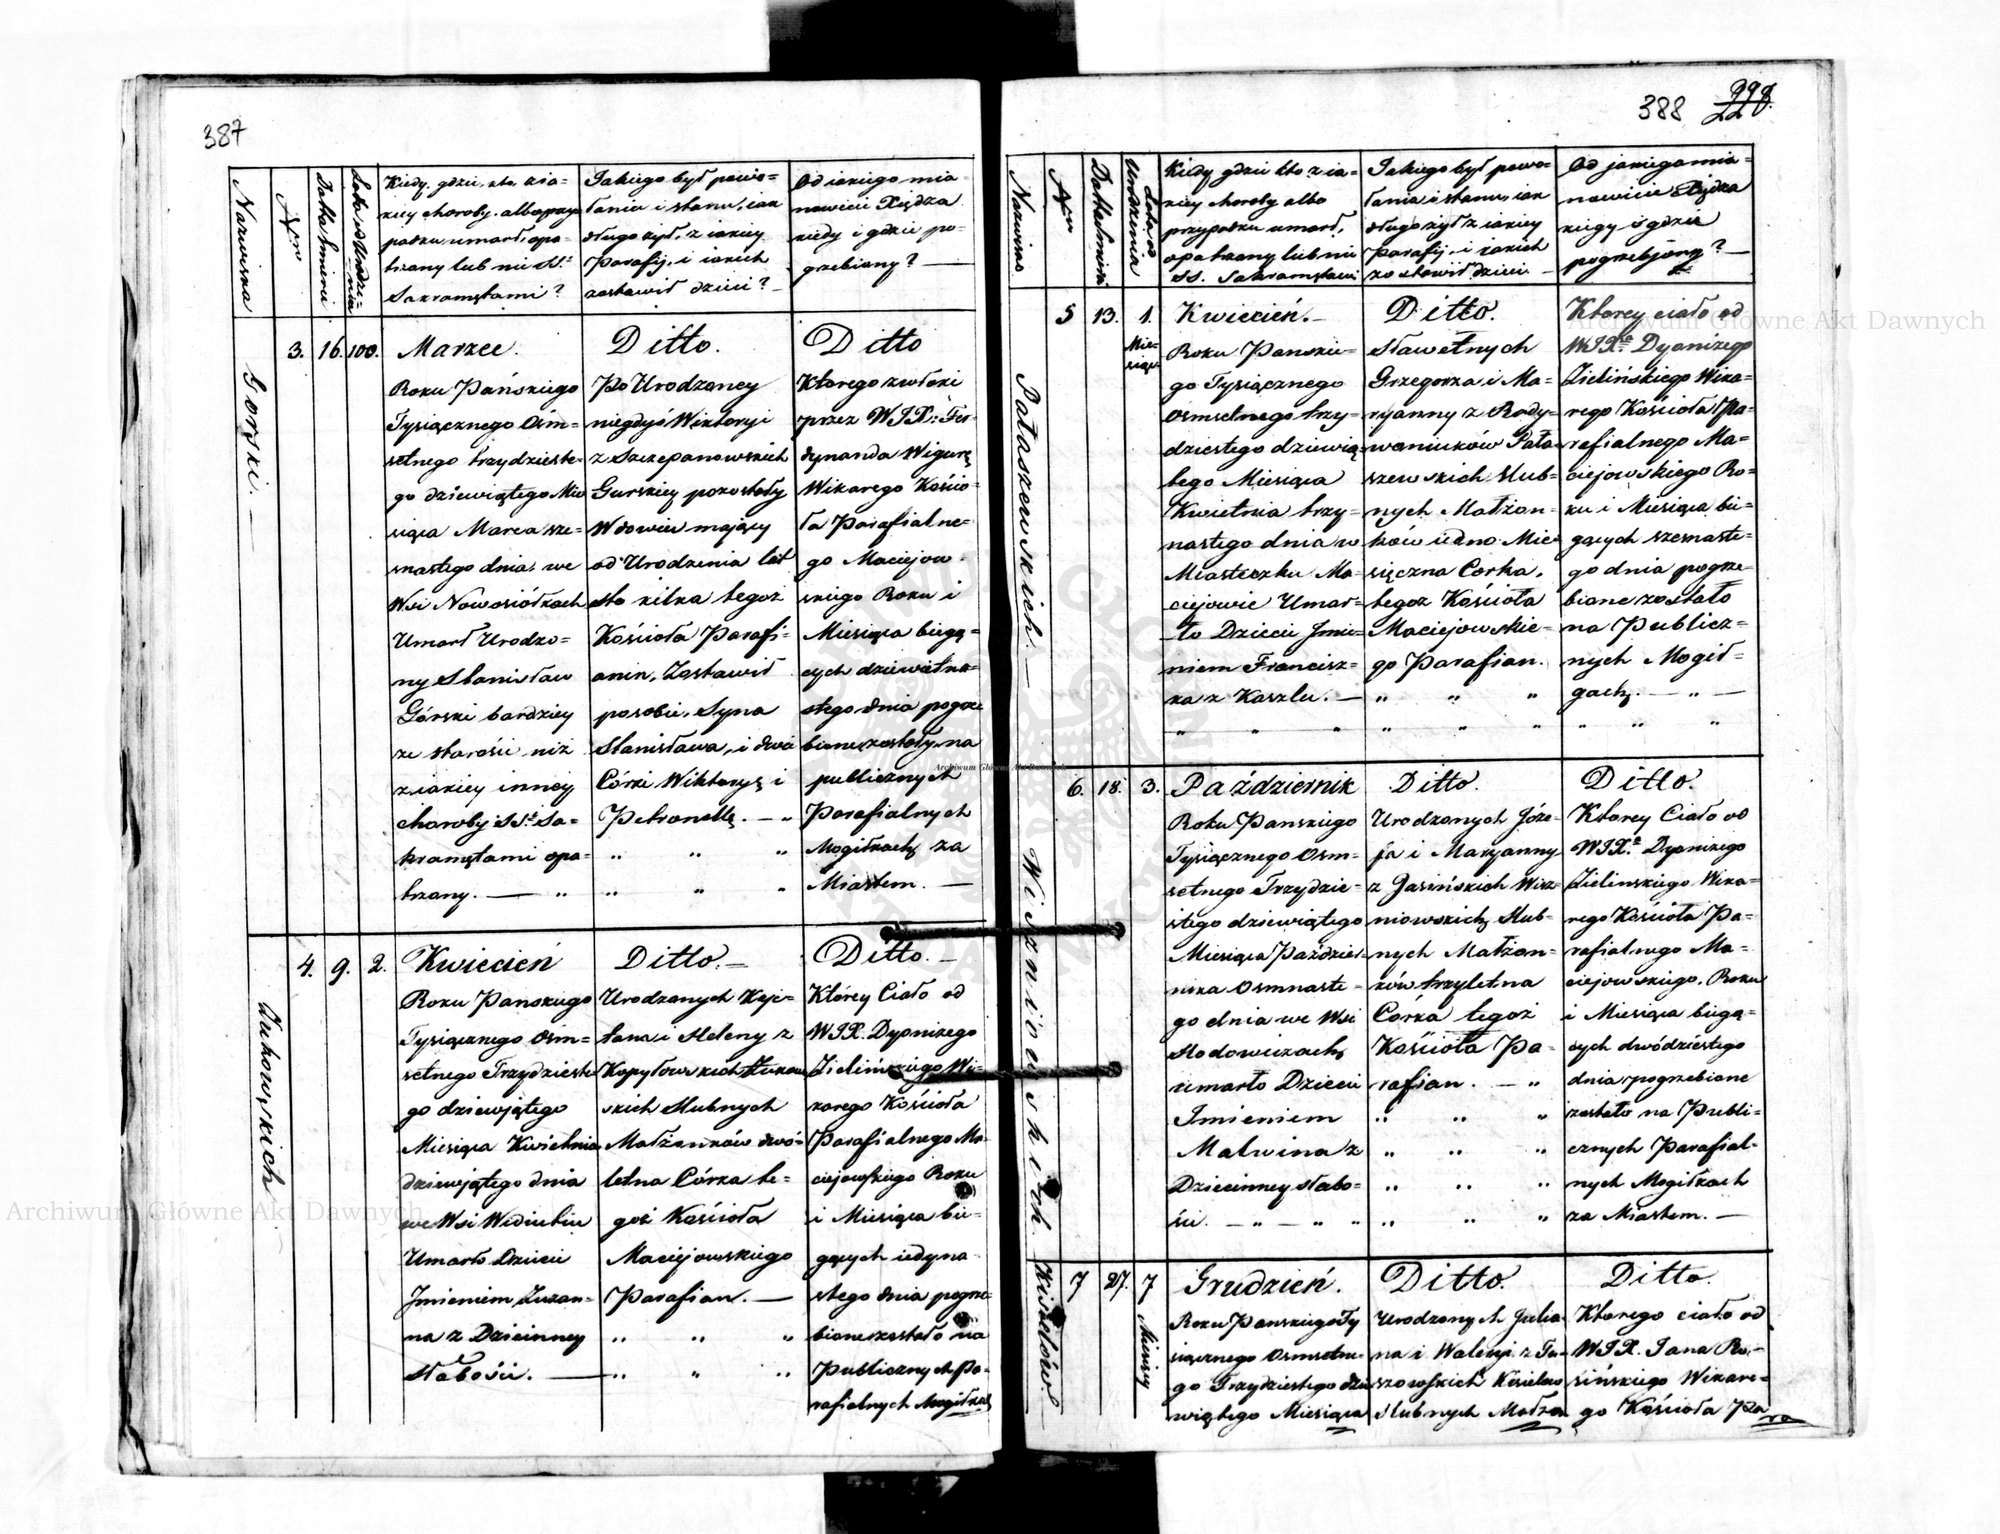 387
Nazwiska
Nro
Data Śmierci
Kiedy, gdzie, kto, z ia-
kiey choroby, albo przy-
padku umarł, opa-
trzony lub nie SS.
Sakramętami?
Jakiego był powo-
łania i stanu, iak
długo żył, z iakiey
Parafij, i iakich
zostawił dzieci?
Od iakiego mia-
nowicie Xiędza
kiedy i gdzie po-
grzebiony?
Gorski.
3.
16.
100.
Marzec.
Roku Pańskiego
Tysiącznego Óśm-
setnego trzydzieste-
go dziewiątego Mie
siąca Marca sze-
snastego dnia, we
Wsi Nowosiółkach
Umarł Urodzo-
ny Stanisław
Górski bardziey
ze starości niż
z iakiey inney
choroby SS. Sa-
kramętami opa-
trzony. — "
Ditto.
Po Urodzoney
niegdyś Wiktoryi
z Szczepanowskich
Gurskiey pozostały
Wdowiec maiący
od Urodzenia lat
sto kilka tegoz
Kościoła Parafi-
anin, Zostawił
po sobie, Syna
Stanisława, i dwie
Córki Wiktoryę i
Petronellę. — "
" " "
" " "
Ditto
Ktorego zwłoki
przez WJX: Fer-
dynanda Wigurę
Wikarego Kościo-
ła Parafialne-
go Maciejow-
skiego Roku i
Miesiąca biegą-
cych dziewiętna-
stego dnia pogrze
bione zostały na
publicznych
Parafialnych
Mogiłkach za
Miastem. —
Żukowskich
4.
9.
2.
Kwiecień
Roku Panskiego
Tysiącznego Óśm-
setnego Trzydzieste
go dziewjątego
Miesiąca Kwietnia
dziewjątego dnia
we Wsi
Umarło Dziecie
Jmieniem Zuzan-
na z Dziecinney
słabości. —
Ditto. —
Urodzonych Kaje-
tana i Heleny z
Kopyłowskich Żukow
skich Slubnych
Małżonków dwó-
letna Córka te-
goż Kościoła
Maciejowskiego
Parafian. —
" " "
" " "
Ditto. —
Którey Ciało od
WJX. Dyonizego
Zielińskiego Wi-
karego Kościoła
Parafialnego Ma-
ciejowskiego Roku
i Miesiąca bie-
gących iedyna-
stego dnia pogrze-
bione zostało na
Publicznych Pa-
rafialnych Mogiłkach
388
Nazwisko
Nro
Data Śmierci
Lata od
Urodzenia
Kiedy gdzie kto z ia-
kiey choroby albo
przypadku umarł,
opatrzony lub nie
SS. Sakramętami
Jakiego był powo-
łania i stanu, iak
długo żył z iakiey
Parafij i iakich
zostawił dzieci —
Od jakiego mia-
nowicie Xiędza
kiedy i gdzie
pogrzebjony? —
Pałaszewskich. —
5
13.
1.
Mie-
siąc
Kwiecień. —
Roku Panskie-
go Tysiącznego
osmsetnego trzy-
dziestego dziewią-
tego Miesiąca
Kwietnia trzy-
nastego dnia w
Miasteczku Ma-
ciejowie Umar-
ło Dziecie Jmie-
niem Francisz-
ka z Kaszlu. —
" " "
Ditto.
Sławetnych
Grzegorza i Ma-
ryanny z Rody-
waniuków Pała-
szewskich Slub-
nych Małżon-
ków iedno Mie-
sięczna Corka,
tegoz Kościoła
Maciejowskie-
go Parafian.
" " "
" " "
Ktorey ciało od
WJXa Dyonizego
Zielińskiego Wika-
rego Kościoła Pa-
rafialnego Ma-
ciejowskiego Ro-
ku i Miesiąca bie-
gących szesnaste-
go dnia pogrze-
bione zostało
na Publicz-
nych Mogił-
gach. — " —
" " "
Wiszniowskich.
6.
18.
3.
Październik
Roku Panskiego
Tysiącznego Osm-
setnego Trzydzie-
stego dziewiątego
Miesiąca Paździer-
nika Osmnaste-
go dnia we Wsi
Słodowiczach
umarło Dziecie
Jmieniem
Malwina z
Dziecinney słabo-
ści. — " — " "
Ditto.
Urodzonych Józe-
fa i Maryanny
z Jasińskich Wisz-
niowskich, Slub-
nych Małżon-
ków trzyletna
Córka tegoż
Kościoła Pa-
rafian. — "
" " "
" " "
" " "
" " "
Ditto.
Ktorey Ciało od
WJXa Dyonizego
Zielinskiego Wika-
rego Kościoła Pa-
rafialnego Ma-
ciejowskiego, Roku
i Miesiąca biegą-
cych dwódziestego
dnia pogrzebione
zostało na Publi-
cznych Parafial-
nych Mogiłkach
za Miastem. —
Kisielów
7
27.
7
Miesięcy
Grudzień.
Roku Panskiego Ty
siącznego Osmsetne-
go Trzydziestego dzie
więtego Miesiąca
Ditto.
Urodzonych Julia-
na i Waleryi z Tu-
szowskich Kisielów
Slubnych Małżon
Ditto.
Ktorego ciało od
WJX. Jana Ro-
sińskiego Wikare-
go Kościoła Pa
ra
Archiwum Główne Akt Dawnych
Archiwum Główne Akt Dawnych
Archiwum Główne Akt Dawnych